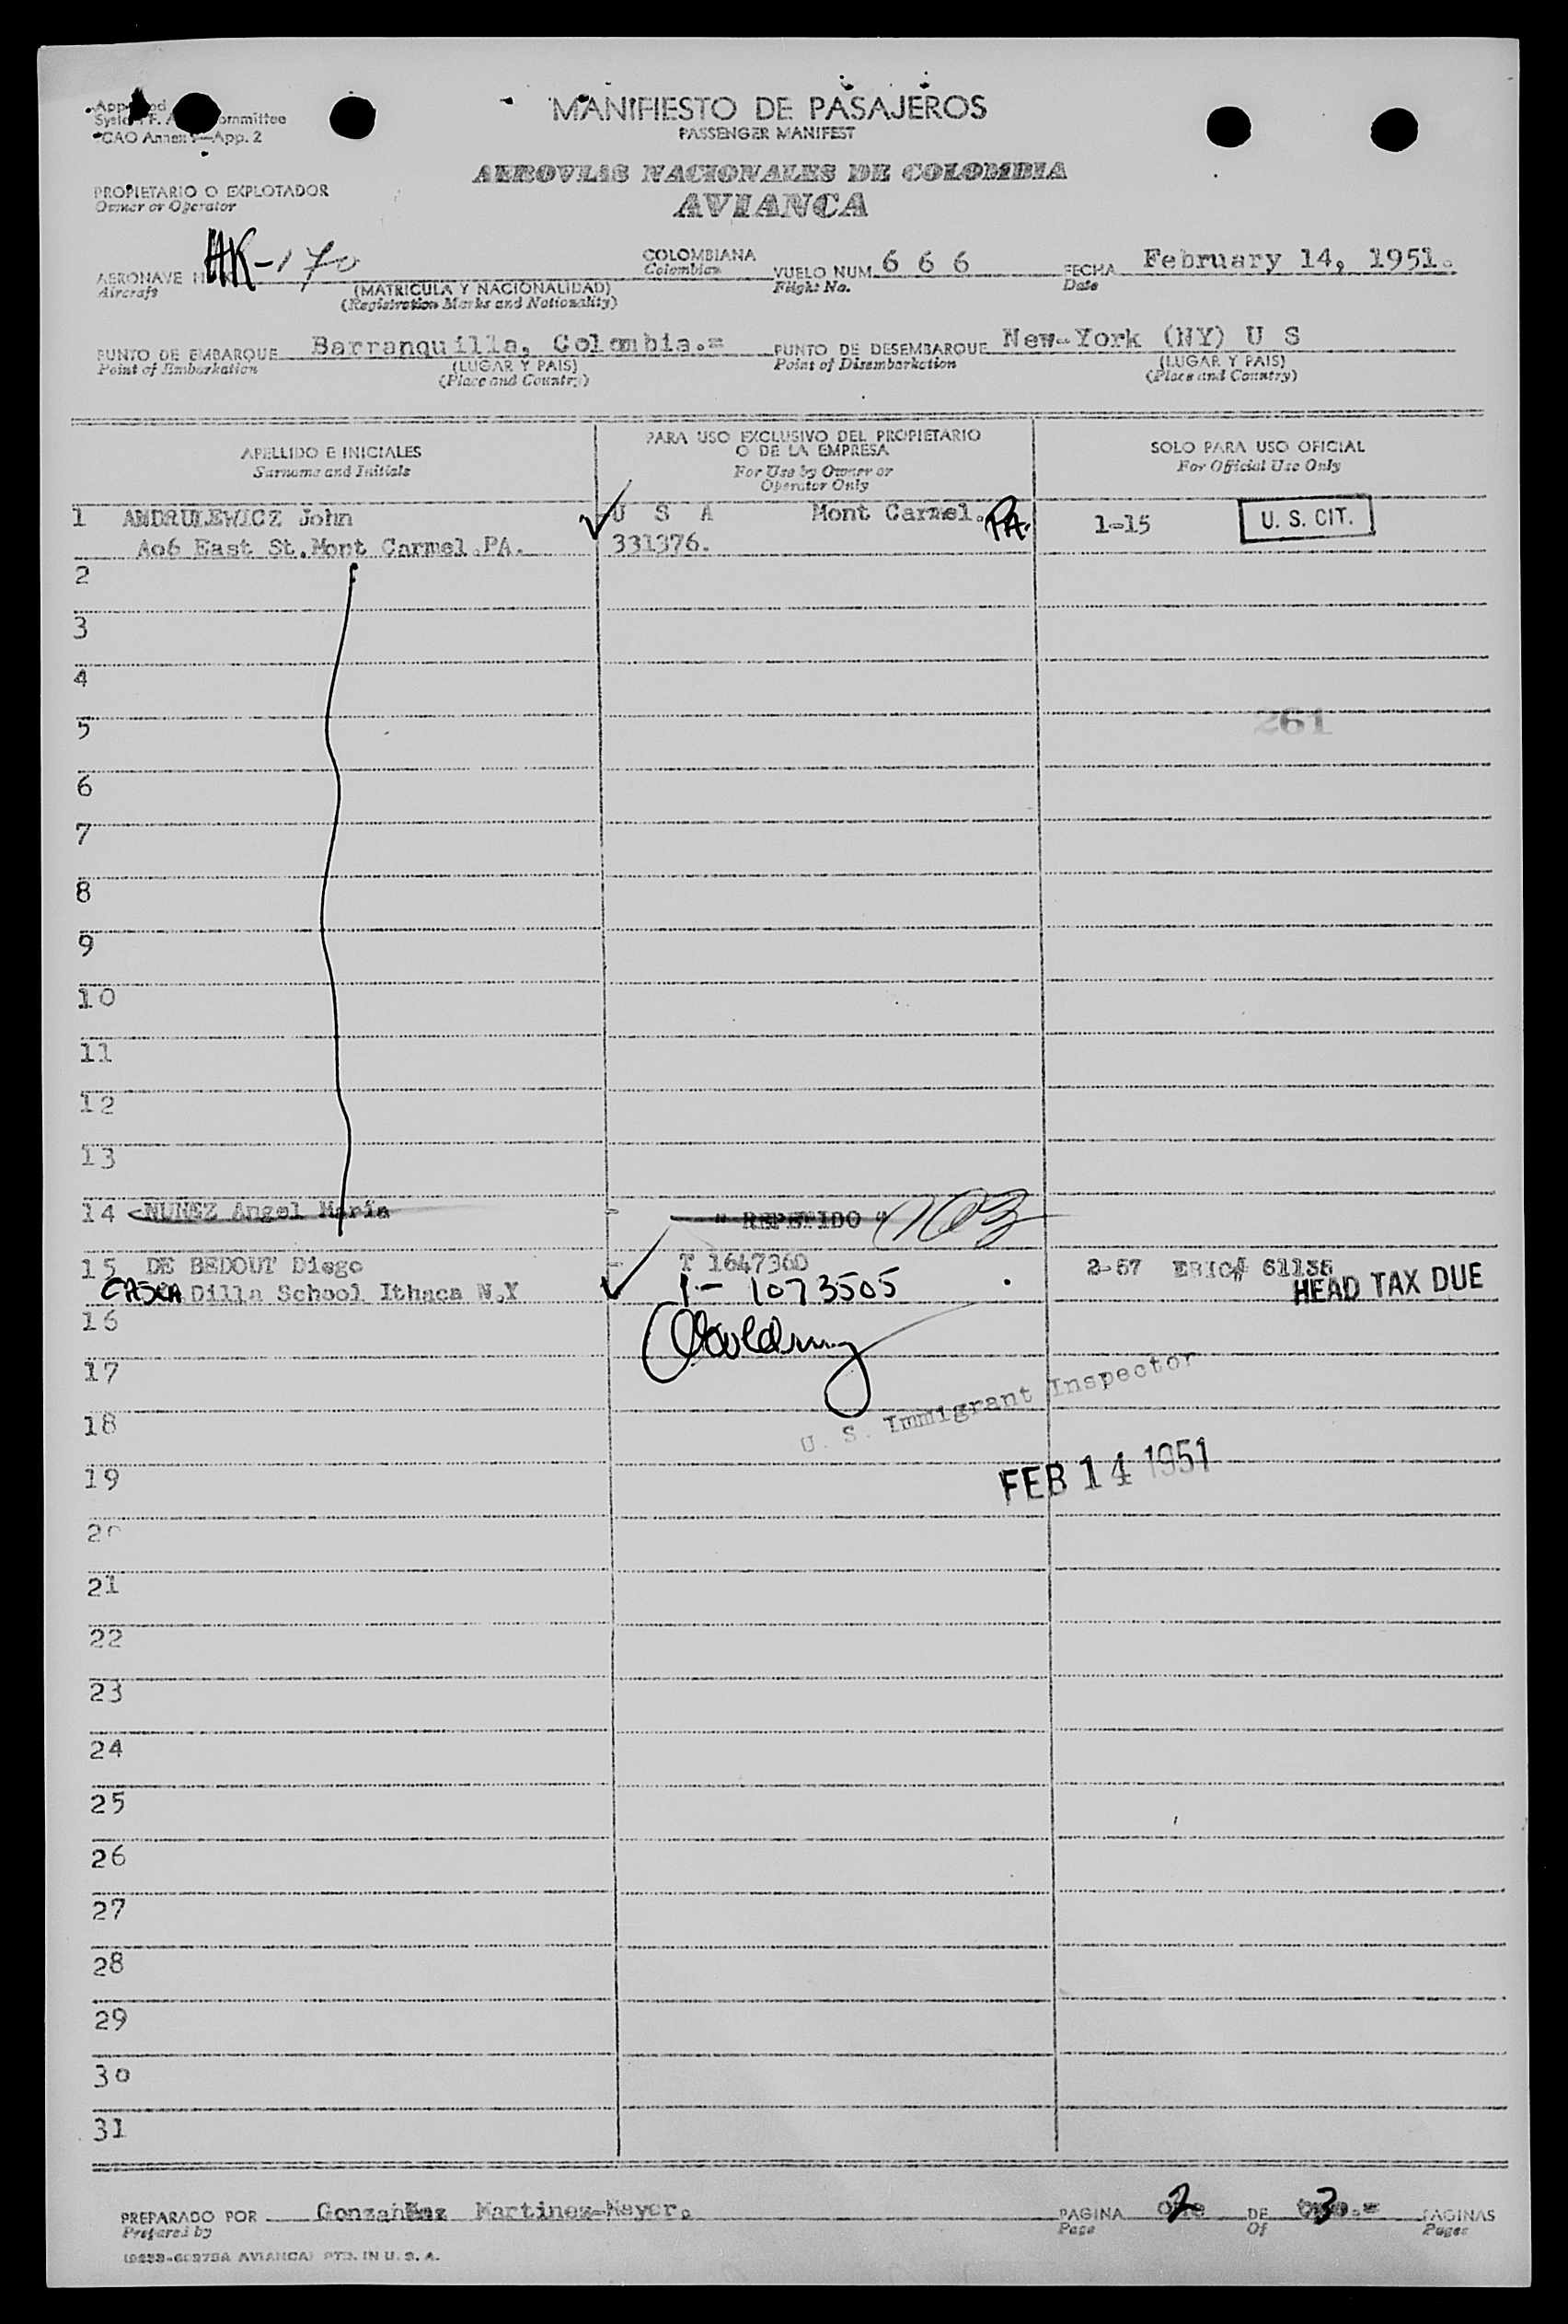 MANIFIESTO DE PASAJEROS
PASSENGER MANIFEST
ommittee
App. 2
AEROVIAS NACIONALES DE COLOMBIA
AVIANCA
PROPIETARIO O EXPLOTADOR
Owner or Operator
AERONAVE HK-170
Aircraft
(MATRICULA Y NACIONALIDAD)
(Registration Marks and Nationality)
COLOMBIANA
Colombian
VUELO NUM. 6 6 6
Flight No.
FECHA February 14, 1951.
Date
PUNTO DE EMBARQUE Barranquilla, Colombia.=
Point of Embarkation
(LUGAR Y PAIS)
(Place and Country)
PUNTO DE DESEMBARQUE New-York (NY) U S
Point of Disembarkation
(LUGAR Y PAIS)
(Place and Country)
APELLIDO E INICIALES
Surname and Initials
PARA USO EXCLUSIVO DEL PROPIETARIO
O DE LA EMPRESA
For Use by Owner or
Operator Only
SOLO PARA USO OFICIAL
For Official Use Only
1 ANDRULEWICZ John U S A Mont Carmel. PA. 1-15 U. S. CIT.
Ao6 East St.Mont Carmel.PA. 331376.
2
3
4
5 261
6
7
8
9
10
11
12
13
14 NUNEZ Angel Maria - " REPETIDO " 103
15 DE BEDOUT Diego - T 1647360 2-57 ERIC# 61135
CASCA Dilla School Ithaca N.Y 1- 1073505 HEAD TAX DUE
16
17
U. S. Immigrant Inspector
18
19 FEB 14 1951
20
21
22
23
24
25
26
27
28
29
30
31
PREPARADO POR Martinez-Meyer.
Prepared by
PAGINA 2 DE 3 PAGINAS
Page Of Pages
AVIANCA) PTD. IN U. S. A.